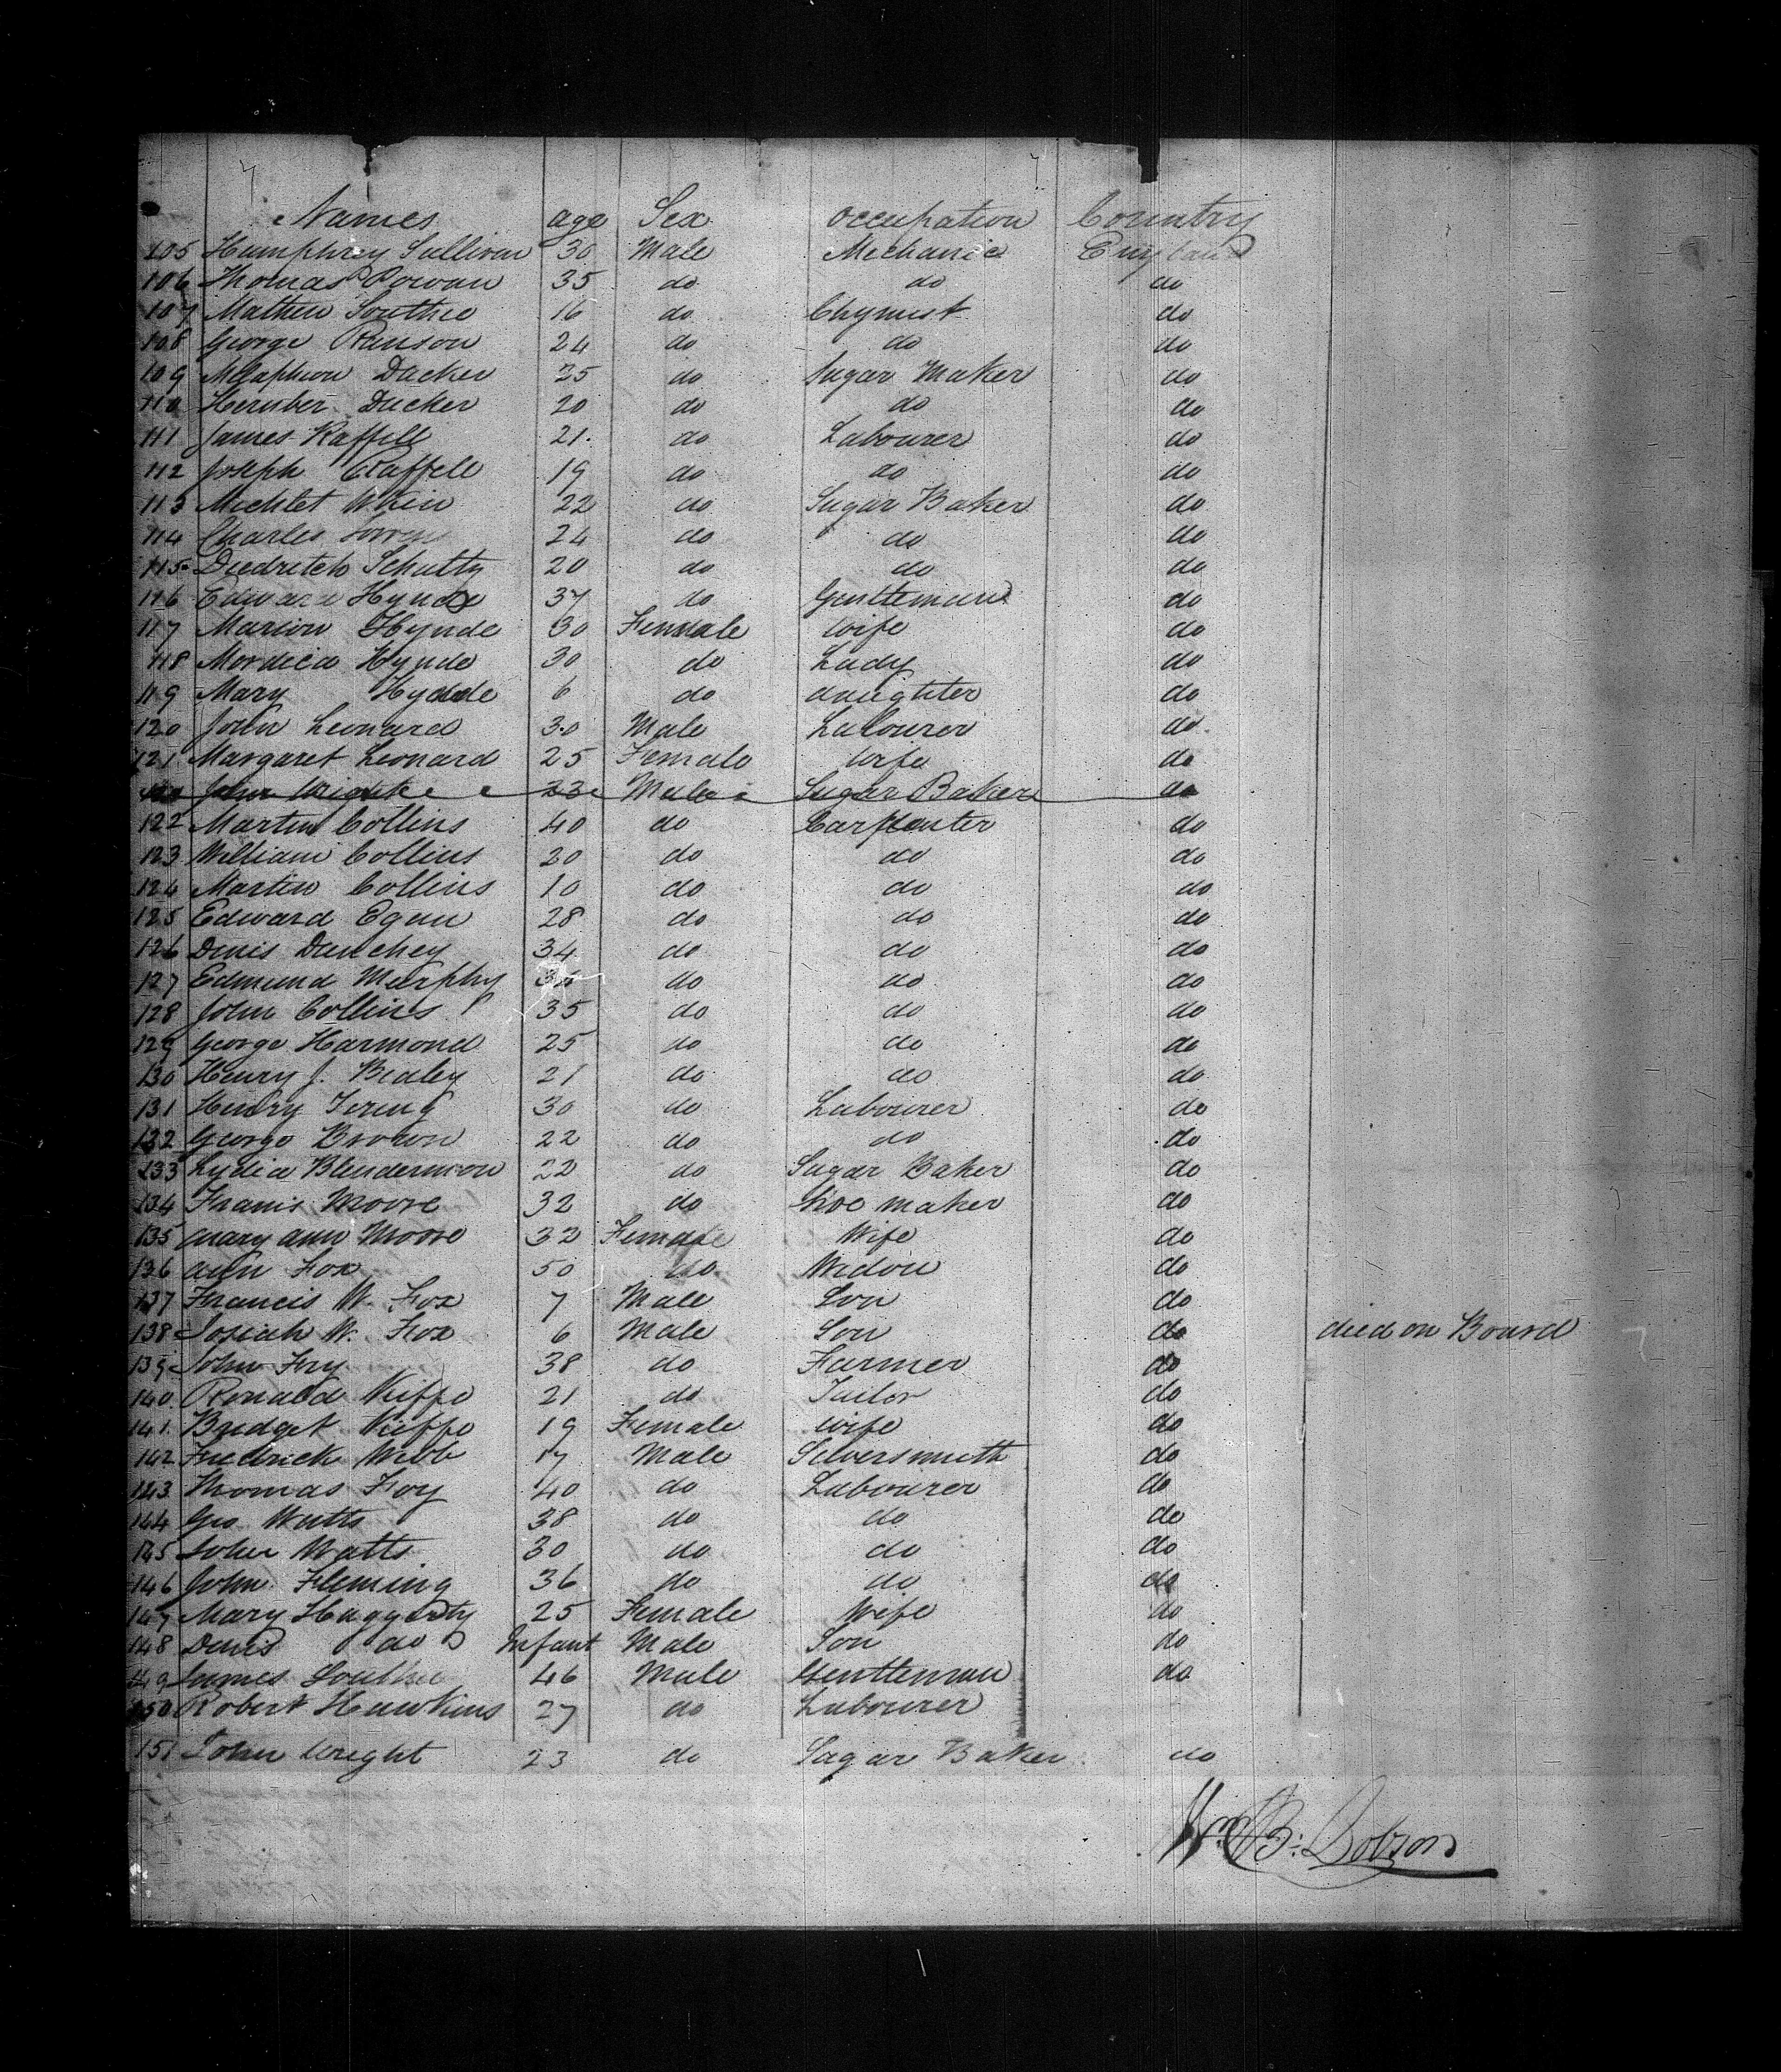 Names age Sex occupation Country
105 Humphrey Sullivan 30 Male Mechanic England
106 Thomas Rowan 35 do do do
107 Mathew Southee 16 do Chymist do
108 George Ranson 24 do do do
109 Ducker 25 do Sugar Maker do
110 Ducker 20 do do do
111 James Raffell 21 do Labourer do
112 Joseph Raffell 19 do do do
113 22 do Sugar Baker do
114 Charles 24 do do do
115 Diedritch Schultz 20 do do do
116 Edward Hynde 37 do Gentleman do
117 Marion Hynde 30 Female Wife do
118 Mordica Hynde 30 do Lady do
119 Mary Hynde 6 do daughter do
120 John Leonard 30 Male Labourer do
121 Margaret Leonard 25 Female Wife do
John Wright 23 Male Sugar Baker do
122 Martin Collins 40 do Carpenter do
123 William Collins 20 do do do
124 Martin Collins 10 do do do
125 Edward Egan 28 do do do
126 Denis Danchey 34 do do do
127 Edmund Murphy do do do
128 John Collins 35 do do do
129 George Harmond 25 do do do
130 Henry J. Bealey 21 do do do
131 Henry 30 do Labourer do
132 George Brown 22 do do do
133 Lydia Blendermon 22 do Sugar Baker do
134 Franis Moore 32 do Shoe maker do
135 Mary ann Moore 32 Female Wife do
136 ann Fox 50 do Widow do
137 Francis W. Fox 7 Male Son do
138 Josiah W. Fox 6 Male Son do died on Board
139 John Fry 38 do Farmer do
140 Ronald Kieffe 21 do Tailor do
141 Bridget Kieffe 19 Female Wife do
142 Fredrick Webb 17 Male Silversmith do
143 Thomas Foy 40 do Labourer do
144 Geo Watts 38 do do do
145 John Watts 30 do do do
146 John Fleming 36 do do do
147 Mary Haggerty 25 Female Wife do
148 Denis do Infant Male Son do
149 James Southee 46 Male Gentleman do
150 Robert Hawkins 27 do Labourer
151 John Wright 23 do Sugar Baker do
Wm B: Dobson